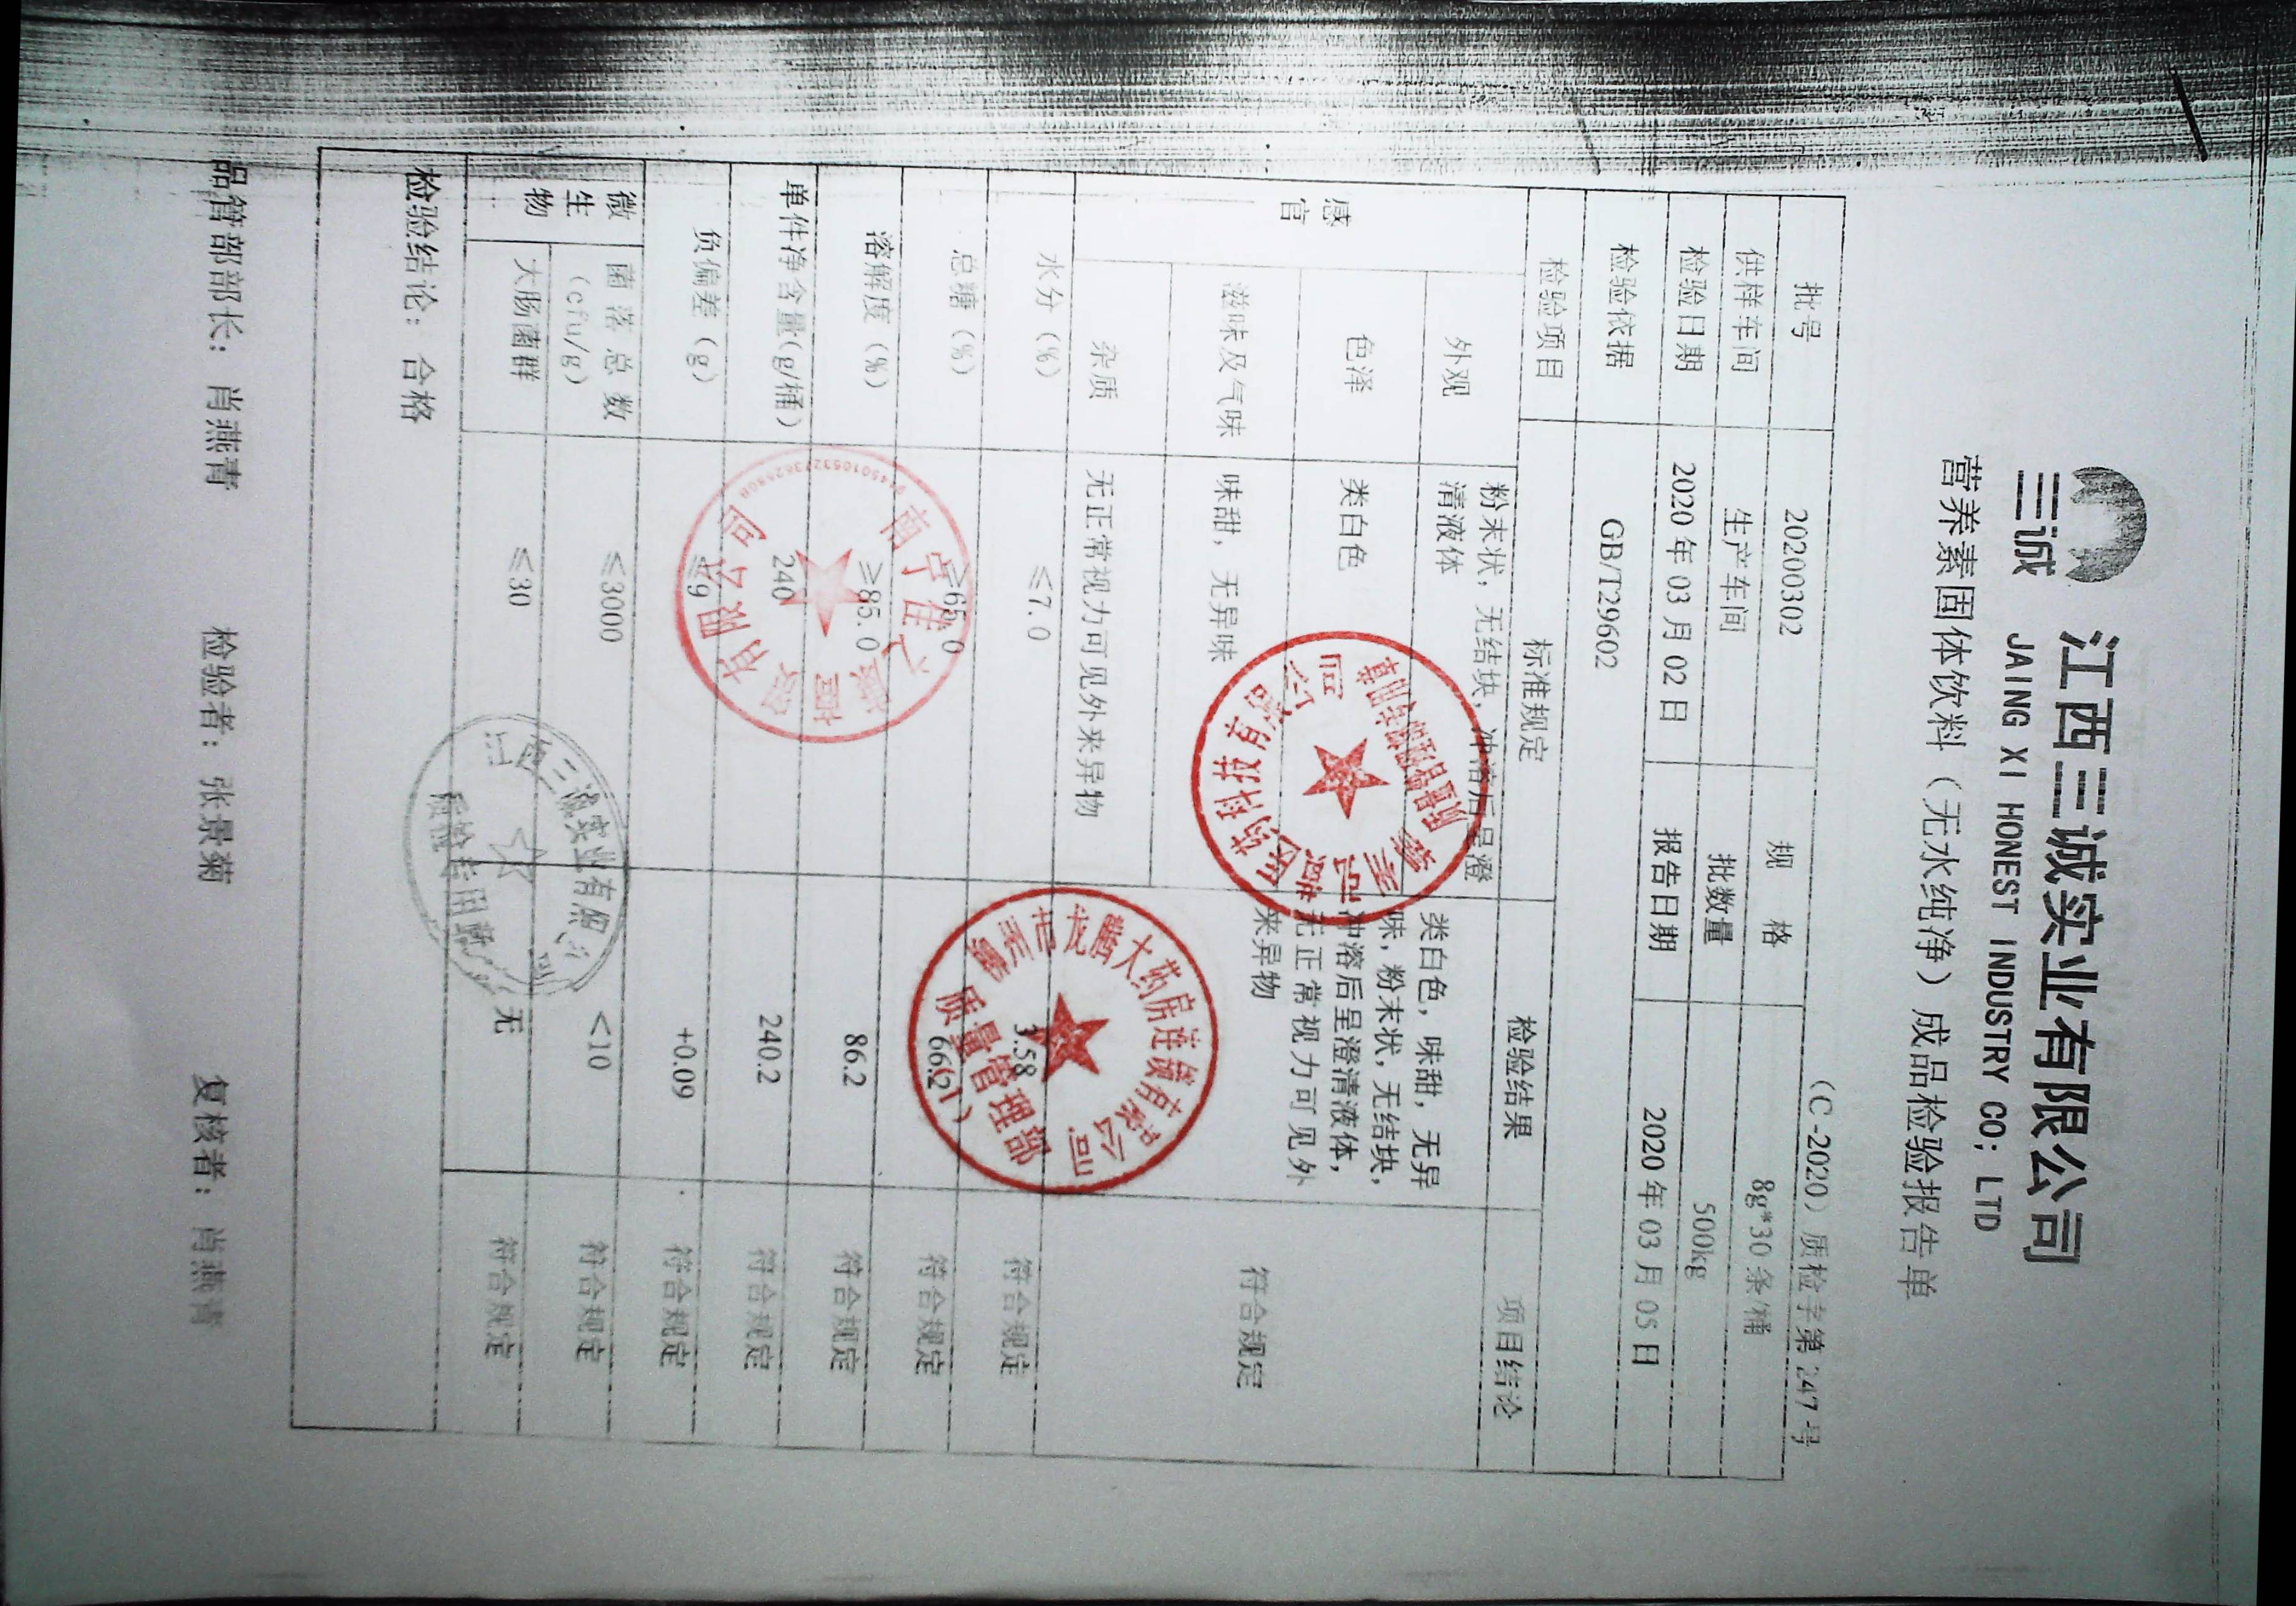 三诚
江西三诚实业有限公司
JAING XI HONEST INDUSTRY CO; LTD
营养素固体饮料（无水纯净）成品检验报告单
（C-2020）质检字第247号
批号 20200302 规 格 8g*30条/桶
供样车间 生产车间 批数量 500kg
检验日期 2020年03月02日 报告日期 2020年03月05日
检验依据 GB/T29602
检验项目 标准规定 检验结果 项目结论
感官
外观 粉末状，无结块，冲溶后呈澄
清液体
色泽 类白色
滋味及气味 味甜，无异味
杂质 无正常视力可见外来异物
类白色，味甜，无异
味，粉末状，无结块，
冲溶后呈澄清液体，
无正常视力可见外
来异物
符合规定
水分（%） ≤7.0 3.58 符合规定
总糖（%） ≥65.0 66.2 符合规定
溶解度（%） ≥85.0 86.2 符合规定
单件净含量(g/桶) 240 240.2 符合规定
负偏差（g） ≤9 +0.09 符合规定
微生物
菌落总数
（cfu/g） ≤3000 <10 符合规定
大肠菌群 ≤30 无 符合规定
检验结论：合格
品管部部长：肖燕青 检验者：张景菊 复核者：肖燕青
柳州市龙腾大药房连锁有限公司
质量管理部
（1）
医药科技有限公司
南宁
有限公司
江西三诚实业有限公司
质检专用章